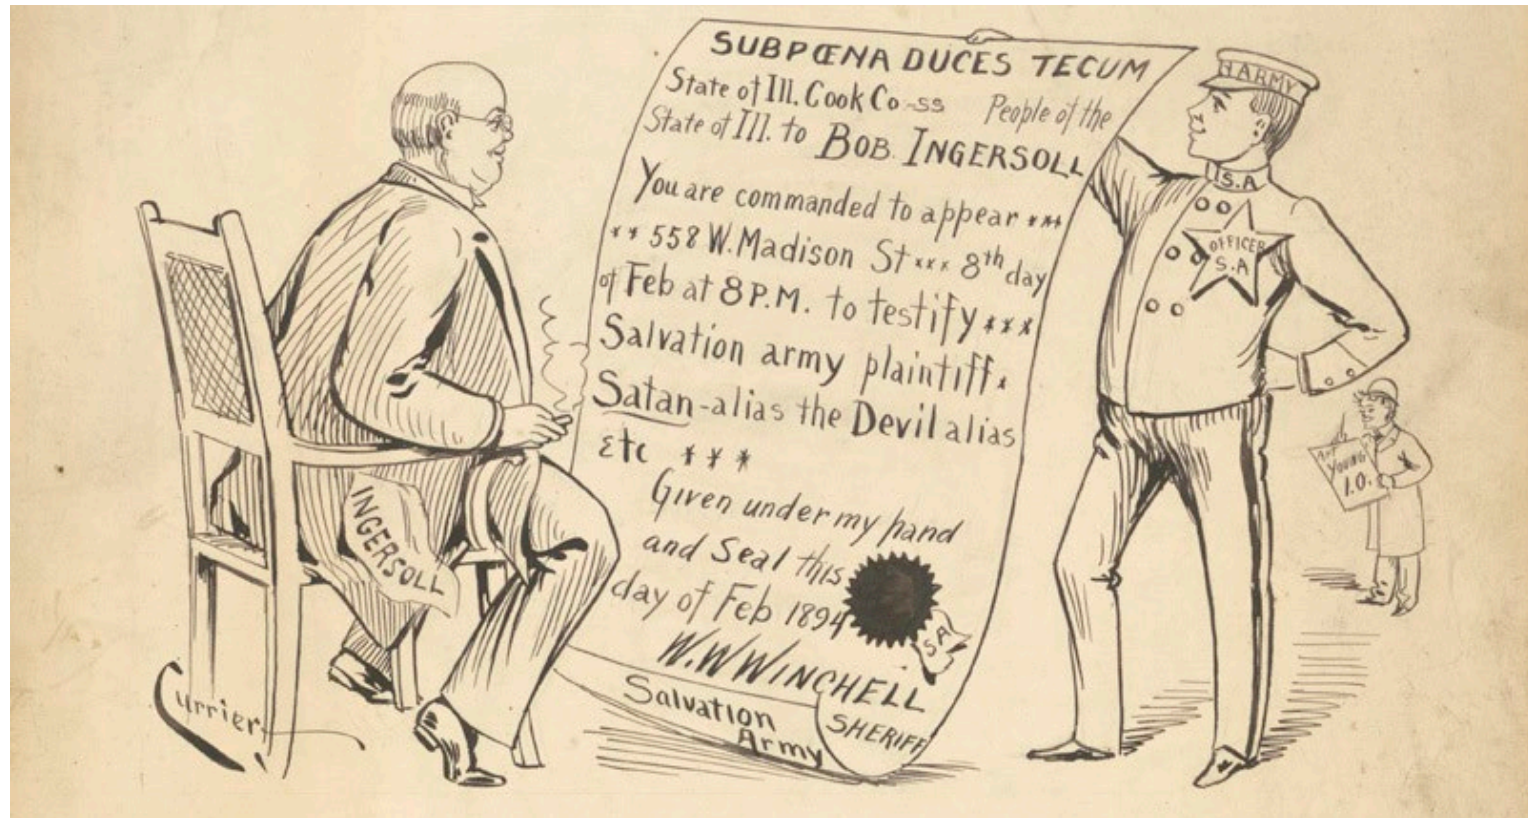 SUBPŒNA DUCES TECUM
State of Ill. Cook Co-ss People of the
State of Ill. to BOB. INGERSOLL
You are commanded to appear ***
** 558 W. Madison St *** 8th day
of Feb at 8 P.M. to testify ***
Salvation army plaintiff *
Satan-alias the Devil alias
Etc ***
Given under my hand
and Seal this
day of Feb 1894
W.W WINCHELL
SHERIFF
Salvation
Army
S A
ARMY
S.A
OFFICER
S.A
YOUNG
I.O.
INGERSOLL
Currier